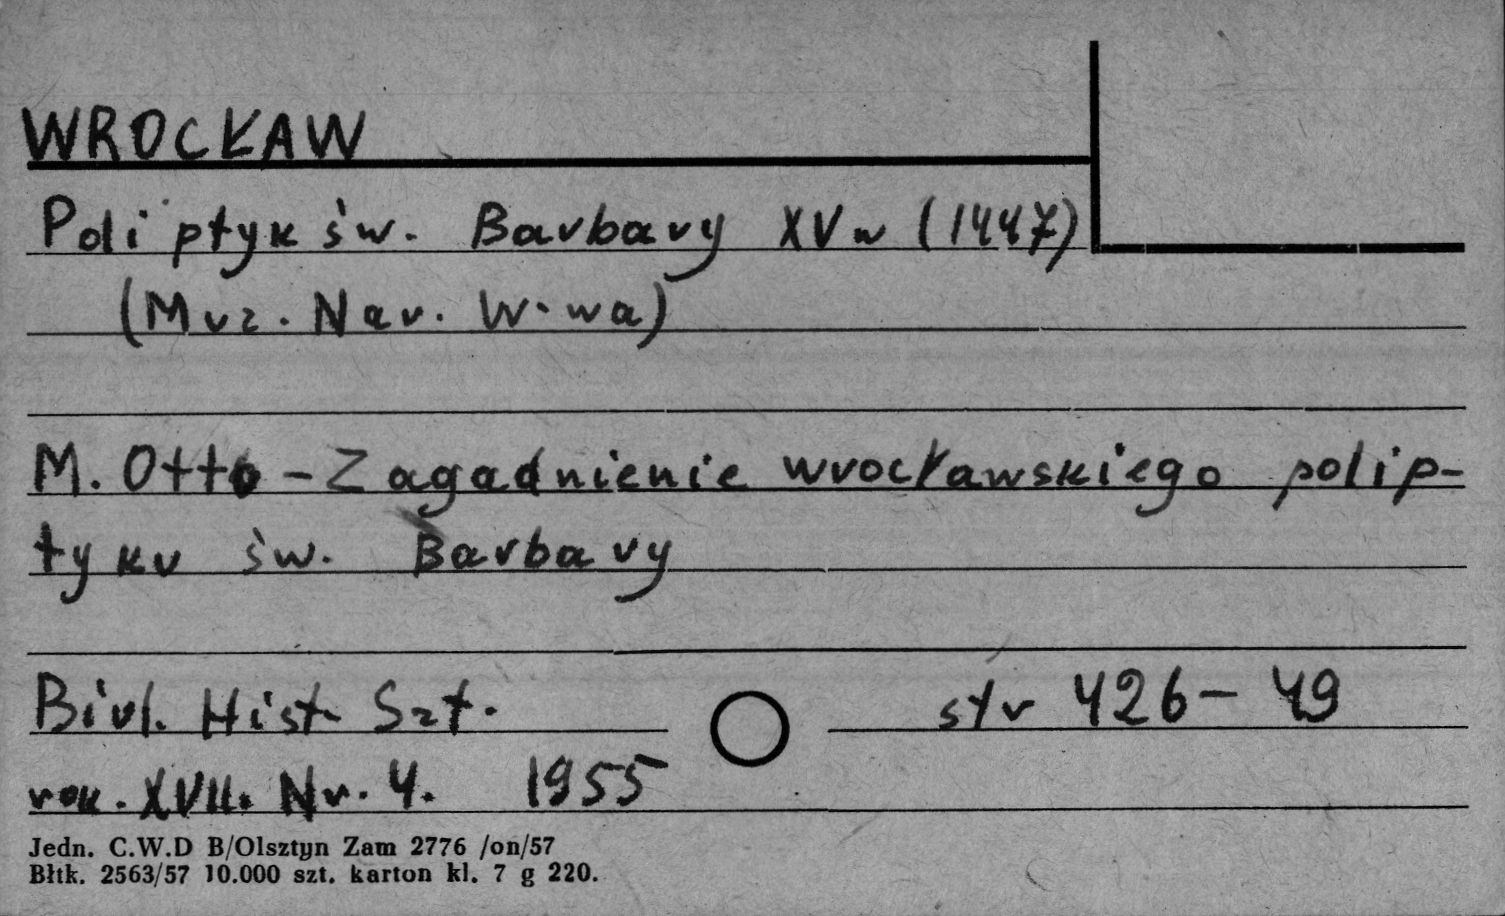 WROCŁAW
Poliptyk św. Barbary XV w (1447)
(Muz. Nar. W-wa)
M. Otto - Zagadnienie wrocławskiego polip-
tyku św. Barbary
Biul. Hist. Szt. str 426-49
rok. XVII. Nr. 4. 1955
Jedn. C.W.D B/Olsztyn Zam 2776 /on/57
Błtk. 2563/57 10.000 szt. karton kl. 7 g 220.